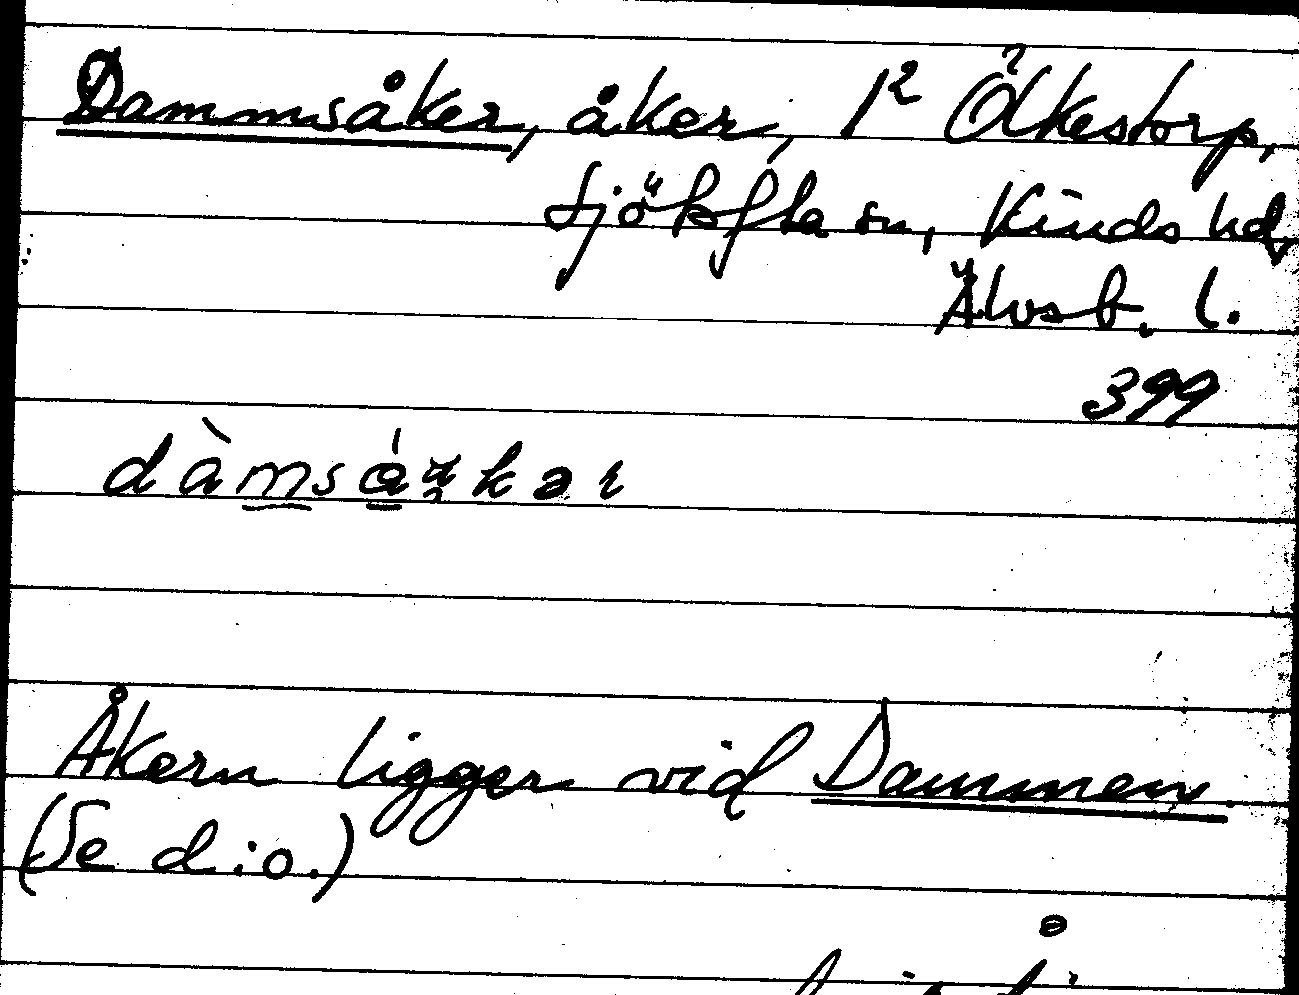 Dammsåker, åker, 1² Ölkestorp,
Tjökfla sn, Kinds hd,
Älvsb. l.
399
Åkern ligger vid Dammen.
(Se d:o.)